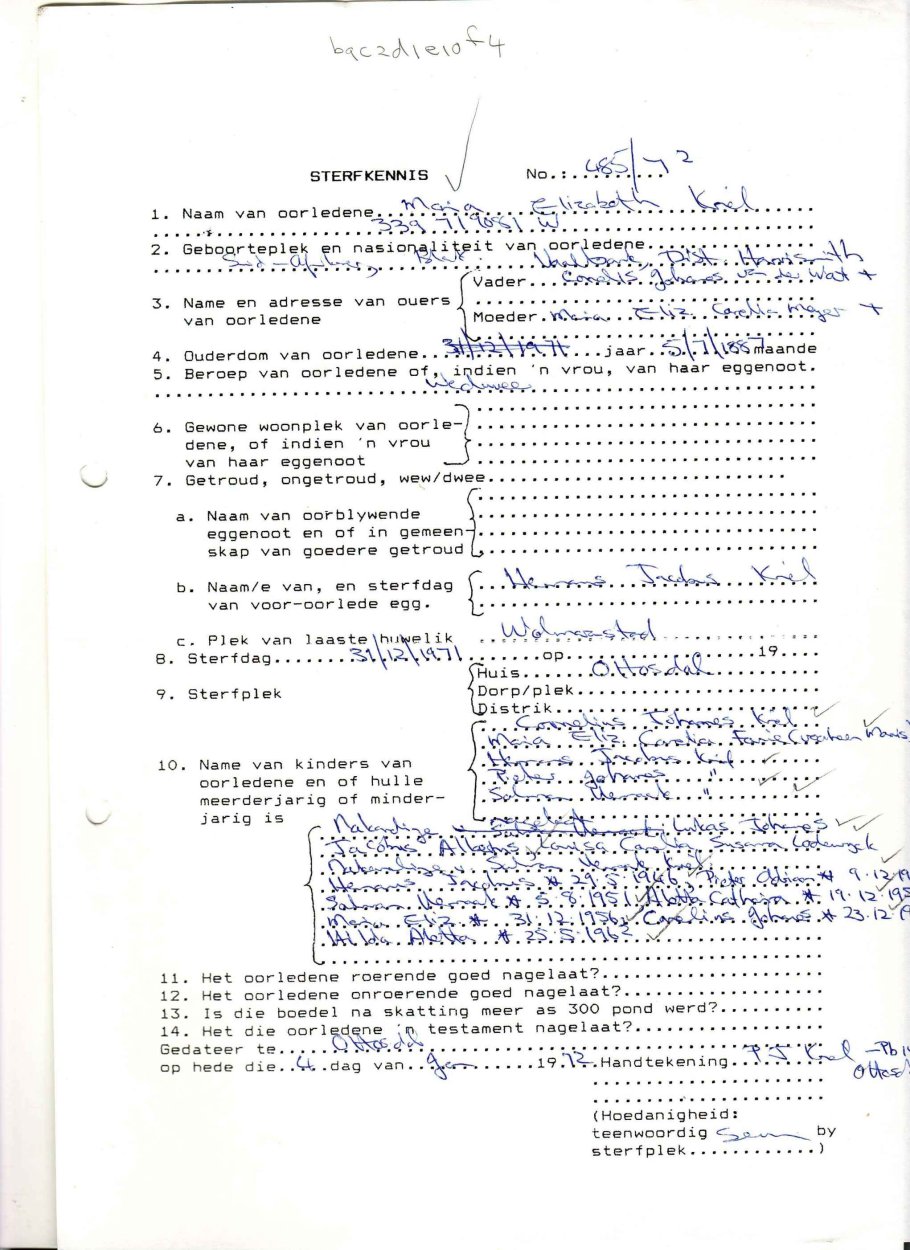 bqc2d1e10f4
STERFKENNIS No.:.485/72
1. Naam van oorledene Maria Elizabeth Kriel
339 719081 W
2. Geboorteplek en nasionaliteit van oorledene
Suid-Afrikaner, Blank: Dist. Harrismith
Vader Cornelis Johannes van der Watt +
3. Name en adresse van ouers
van oorledene
Moeder Maria Eliz Carolia Meyer +
4. Ouderdom van oorledene 31/12/1971 jaar 5/7/1887 maande
5. Beroep van oorledene of, indien 'n vrou, van haar eggenoot.
Weduwee
6. Gewone woonplek van oorle-
dene, of indien 'n vrou
van haar eggenoot
7. Getroud, ongetroud, wew/dwee
a. Naam van oorblywende
eggenoot en of in gemeen-
skap van goedere getroud
b. Naam/e van, en sterfdag Hermanus Jacobus Kriel
van voor-oorlede egg.
c. Plek van laaste huwelik Wolmaranstad
8. Sterfdag 31/12/1971 op 19
Huis Ottosdal
9. Sterfplek Dorp/plek
Distrik
Cornelius Johannes Kriel
Maria Eliz Carolia
10. Name van kinders van Hermanus Jacobus Kriel
oorledene en of hulle Pieter Johannes "
meerderjarig of minder- Salman "
jarig is
Lukas Johannes
Jacobus Albertus, Louisa Carolia, Susara Lodewyck
Salman Kriel
Hermanus Jacobus * 29.5.1946, Pieter Adriaan * 9.12.19
Salman * 5.8.1951, Aletta Catharina * 19.12.195
Maria Eliz * 31.12.1956, Carolius Johannes * 23.12.19
Hilda Aletta * 25.5.1963
11. Het oorledene roerende goed nagelaat?
12. Het oorledene onroerende goed nagelaat?
13. Is die boedel na skatting meer as 300 pond werd?
14. Het die oorledene 'n testament nagelaat?
Gedateer te Ottosdal
op hede die 4 dag van Jan 1972 Handtekening P J Kriel - Pb
Ottosd
(Hoedanigheid:
teenwoordig Seun by
sterfplek............)